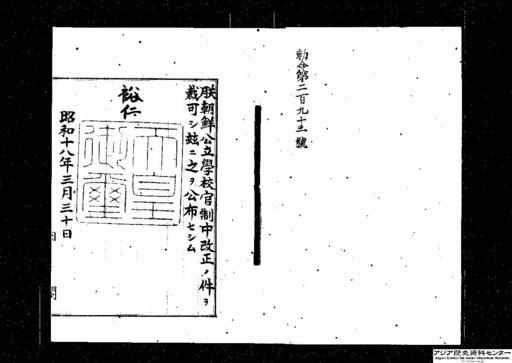 勅令第二百九十三號
朕朝鮮公立學校官制中改正ノ件ヲ
裁可シ玆ニ之ヲ公布セシム
裕仁
天皇
御璽
昭和十八年三月三十日
内閣
アジア歴史資料センター
Japan Center for Asian Historical Records